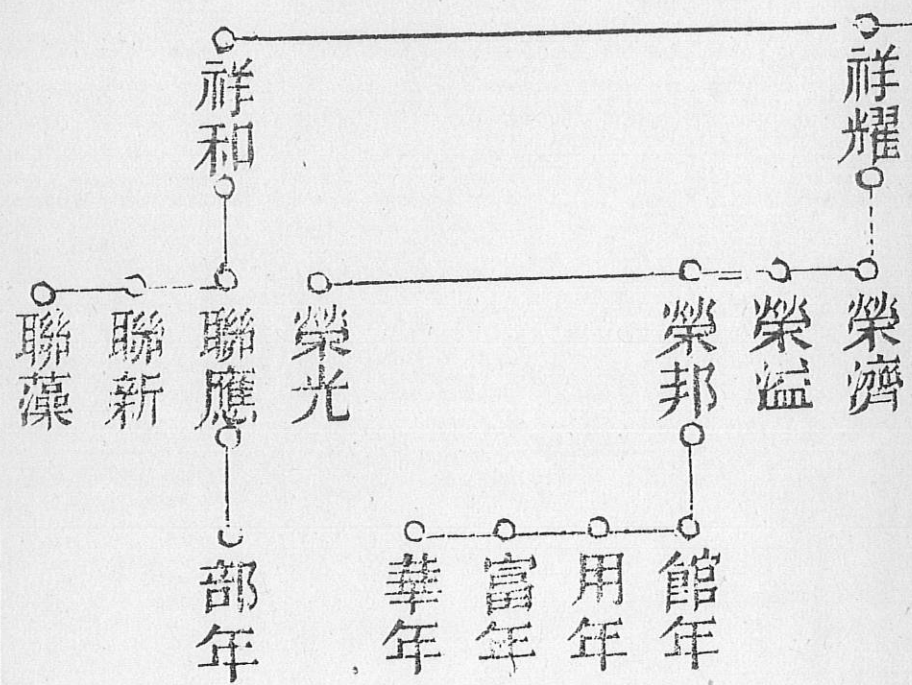 祥耀
祥和
榮濟
榮溢
榮邦
榮光
聯應
聯新
聯藻
館年
用年
富年
華年
部年